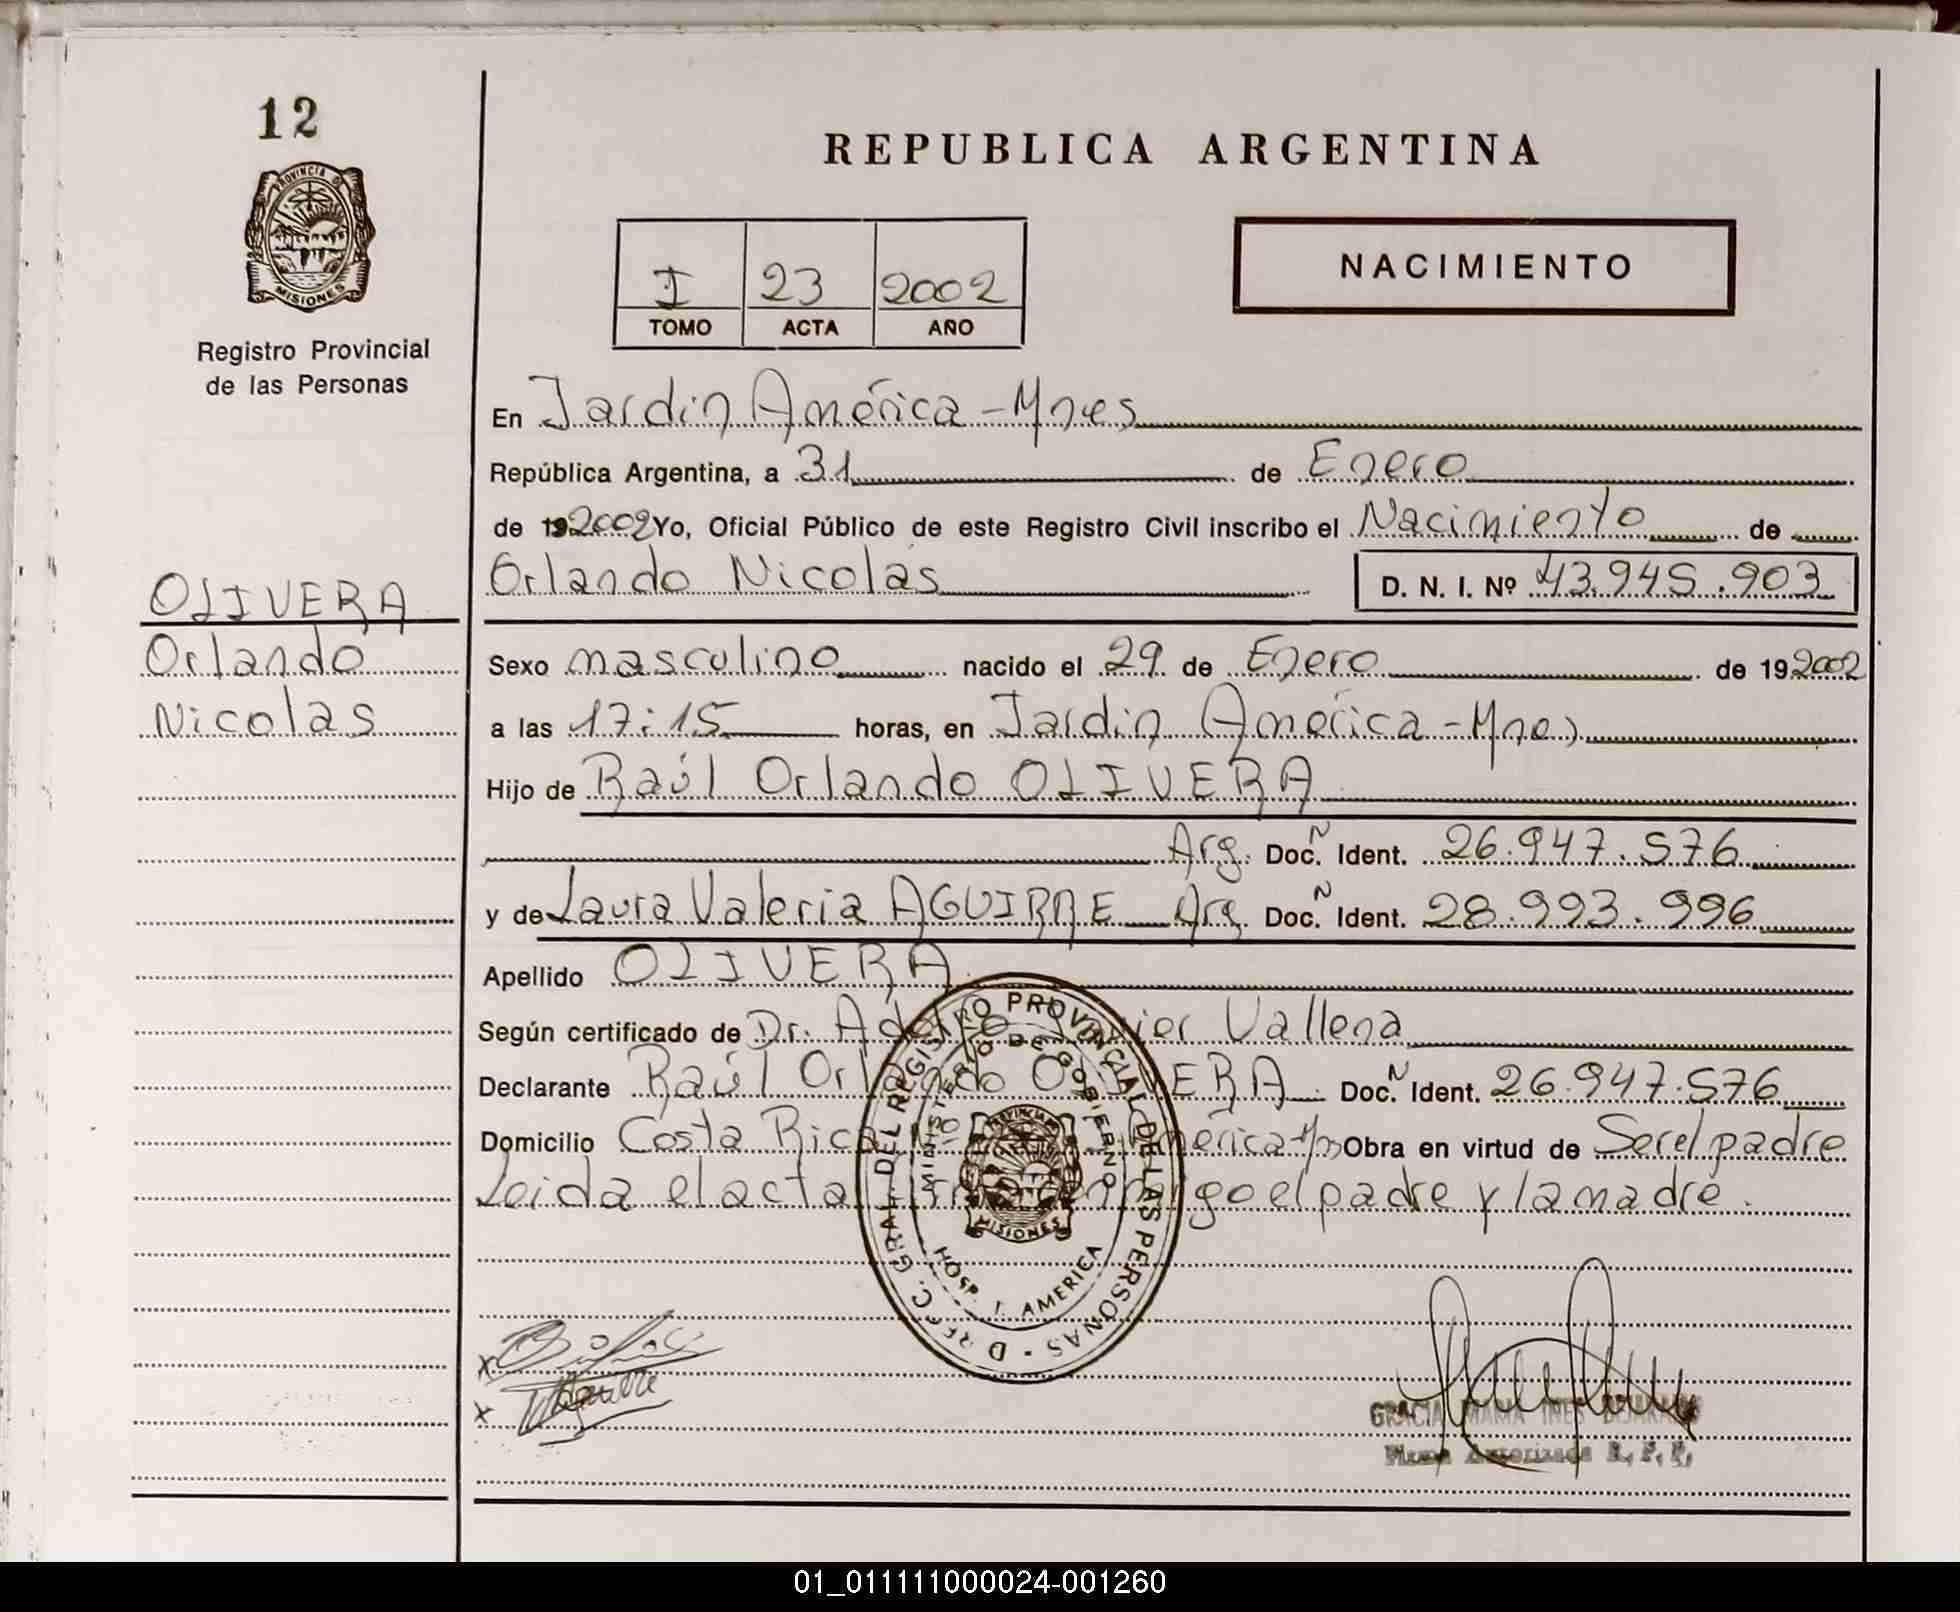 12
PROVINCIA DE
MISIONES
Registro Provincial
de las Personas
OLIVERA
Orlando
Nicolas
REPUBLICA ARGENTINA
I 23 2002
TOMO ACTA AÑO
NACIMIENTO
En Jardin América - Mnes
República Argentina, a 31 de Enero
de 192002 Yo, Oficial Público de este Registro Civil inscribo el Nacimiento de
Orlando Nicolas D. N. I. Nº 43.945.903
Sexo masculino nacido el 29 de Enero de 192002
a las 17:15 horas, en Jardin América - Mnes
Hijo de Raúl Orlando OLIVERA
Arg. Doc. N Ident. 26.947.576
y de Laura Valeria AGUIRRE Arg. Doc. N Ident. 28.993.996
Apellido OLIVERA
Según certificado de Dr. Vallena
Declarante Raúl Orlando OLIVERA Doc. N Ident. 26.947.576
Domicilio Costa Rica América Obra en virtud de Ser el padre
Leida el acta el padre y la madre.
DIRECC. GRAL. DEL REGISTRO PROVINCIAL DE LAS PERSONAS
MINISTERIO DE GOBIERNO
PROVINCIA DE
MISIONES
HOSP. J. AMERICA
x
x Aguirre
GRACIA INES
Firma Autorizada R. P. P.
01_011111000024-001260